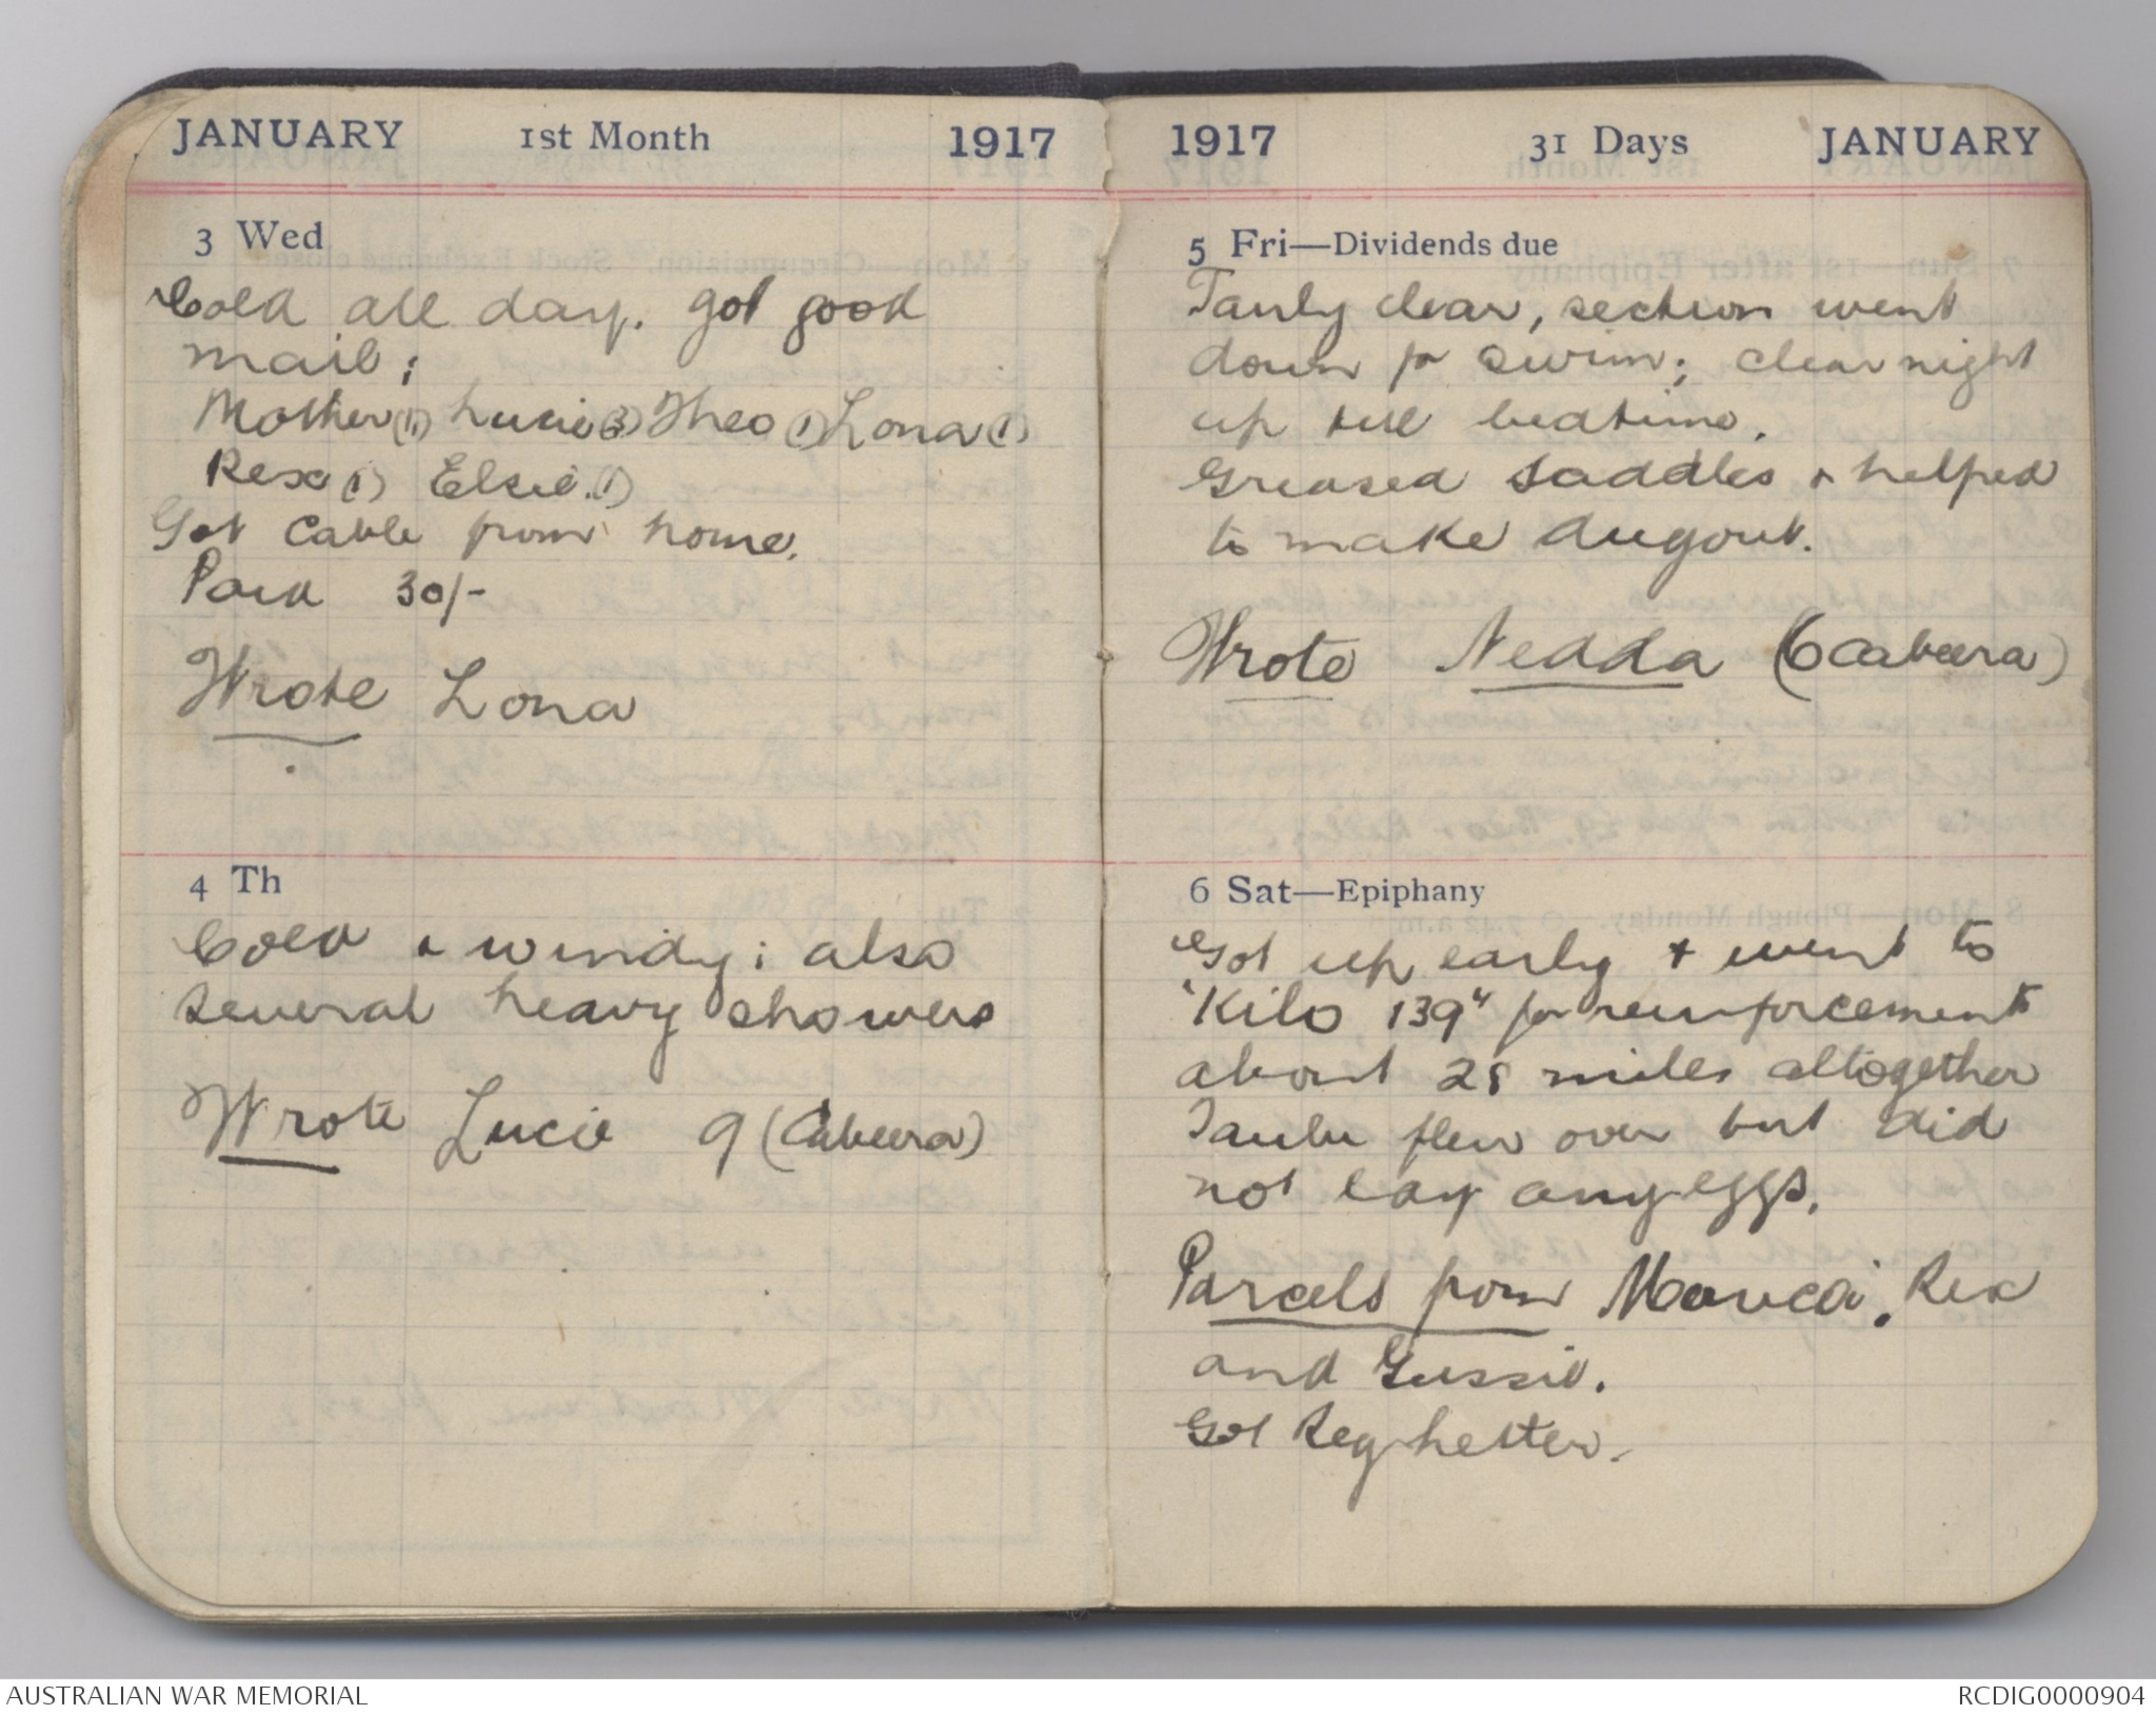 JANUARY 1st Month 1917
3 Wed
Cold all day. Got good
mail;
Mother (1) Lucie (3) Theo (1) Lona (1)
Rex (1) Elsie. (1)
Got Cable from home.
Paid 30/-
Wrote Lona
4 Th
Cold & windy; also
several heavy showers
Wrote Lucie 9 (Cabeera)
1917 31 Days JANUARY
5 Fri—Dividends due
clear, section went
down for swim; clear night
up till bedtime.
Greased saddles & helped
to make dugout.
Wrote Nedda (6 Cabeera)
6 Sat—Epiphany
Got up early & went to
"Kilo 139" for reinforcements
about 28 miles altogether
Taube flew over but did
not lay any eggs.
Parcels from Rex
and Gussie.
Got Reg Letter.
AUSTRALIAN WAR MEMORIAL
RCDIG0000904